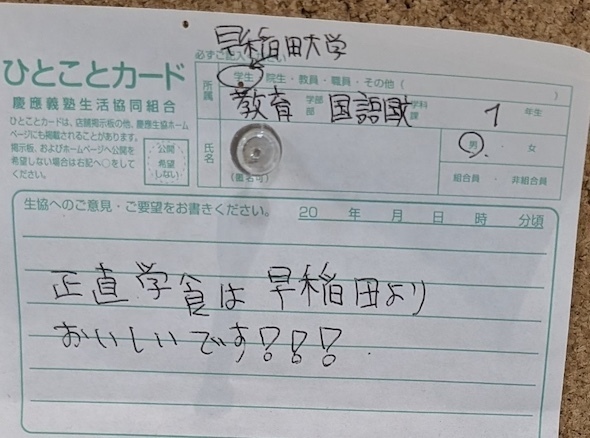 早稲田大学
ひとことカード
慶應義塾生活協同組合
ひとことカードは、店舗掲示板の他、慶應生協ホーム
ページにも掲載されることがあります。
掲示板、およびホームページへ公開を
希望しない場合は右記へ○をして
ください。
公開
希望
しない
必ずご記入ください
所属
学生・院生・教員・職員・その他（　　）
教育 学部 部 国語国文 学科 課 1 年生
氏名
(匿名可)
男 ・ 女
組合員 ・ 非組合員
生協へのご意見・ご要望をお書きください。 20 年 月 日 時 分頃
正直 学食は 早稲田より
おいしいです!!!